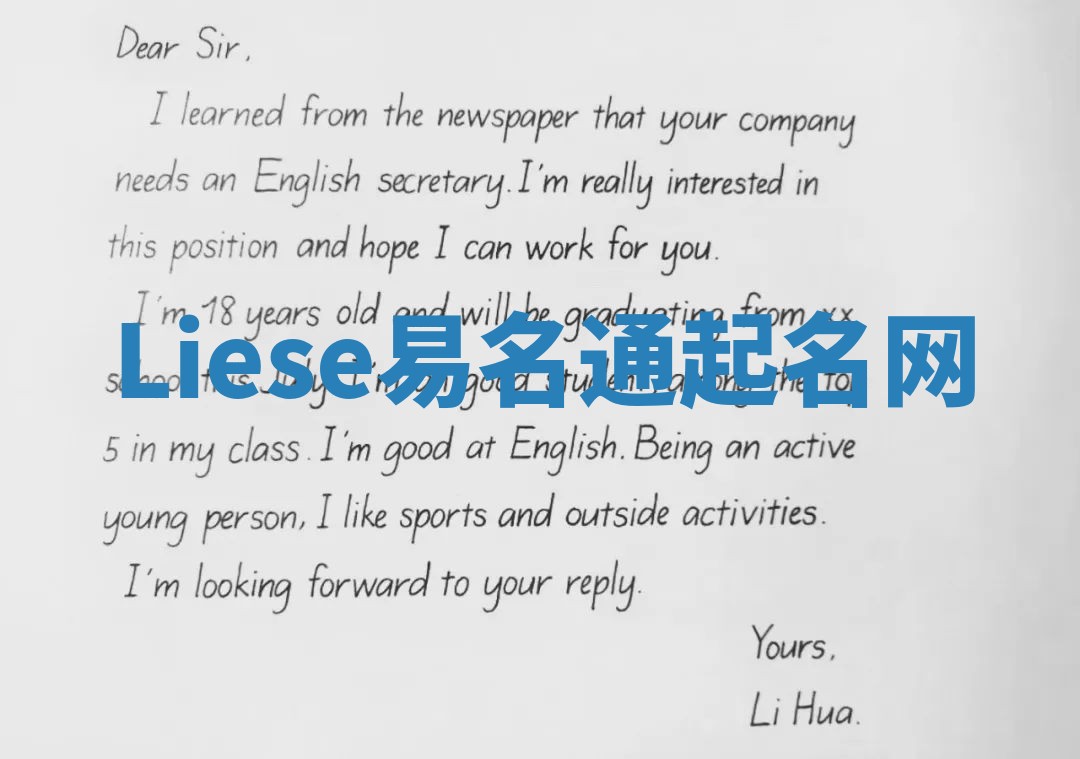 Dear Sir,
I learned from the newspaper that your company
needs an English secretary. I'm really interested in
this position and hope I can work for you.
I'm 18 years old and will be graduating from xx
Liese易名通起名网
school this July. I'm a good student, among the top
5 in my class. I'm good at English. Being an active
young person, I like sports and outside activities.
I'm looking forward to your reply.
Yours,
Li Hua.